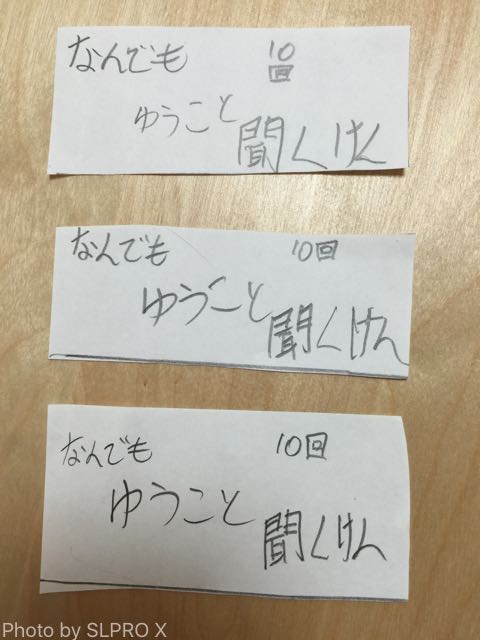 なんでも 10回
ゆうこと
聞くけん
なんでも 10回
ゆうこと
聞くけん
なんでも 10回
ゆうこと
聞くけん
Photo by SLPRO X